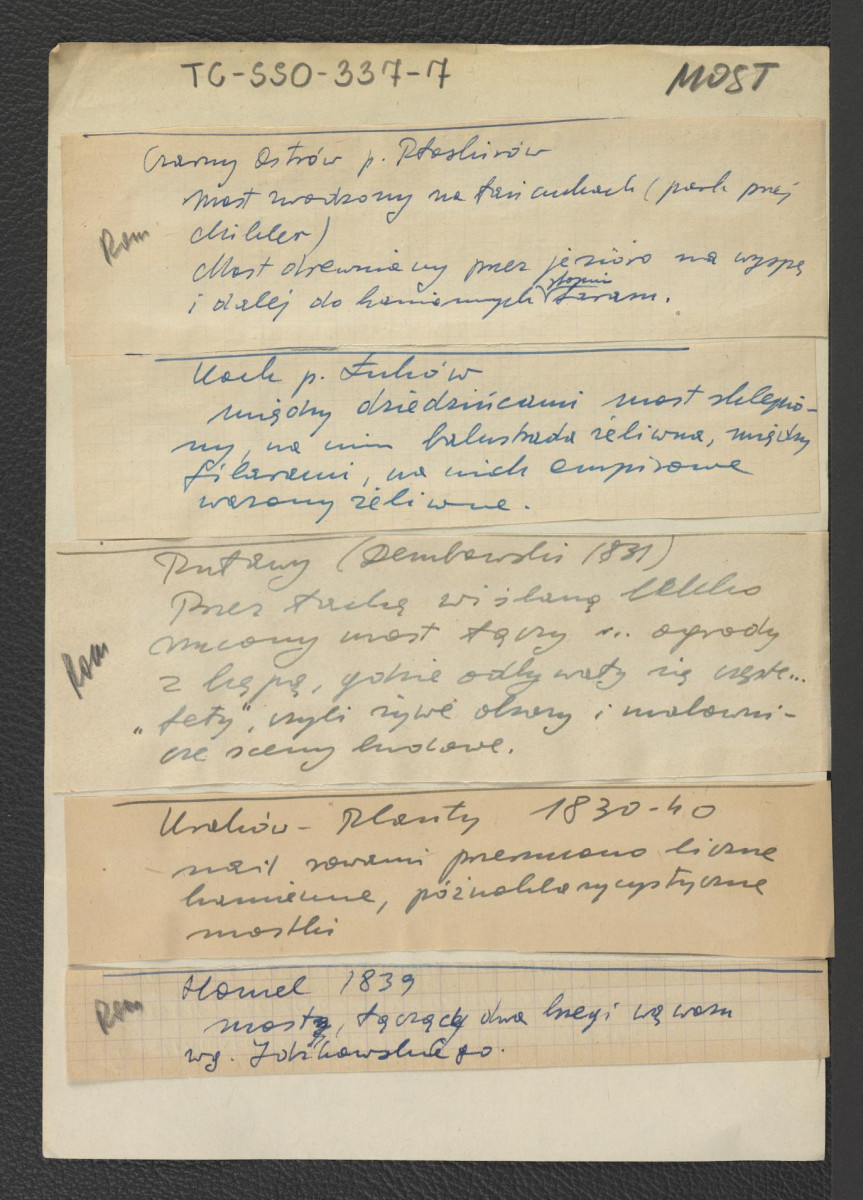 TC-SSO-337-7 MOST
Czarny Ostrów p. Płoskirów
Most zwodzony na łańcuchach (park proj
Mikler)
Most drewniany przez jezioro na wyspę
i dalej do kamiennych stopni taras.
Rom
Kock p. Łuków
między dziedzińcami most sklepio-
ny, na nim balustrada żeliwna, między
filarami, na nich empirowe
wazony żeliwne.
Puławy (Dembowski 1831)
Przez łachę wiślaną lekko
rzucony most łączy ... ogrody
z kępą, gdzie odbywały się częste...
"fety", czyli żywe obrazy i malowni-
cze sceny ludowe.
Rom
Kraków - Planty 1830-40
nad rowami przerzucono liczne
kamienne, późnoklasycystyczne
mostki
Homel 1839
most, łączący dwa brzegi wąwozu
wg. Idźkowskiego.
Rom